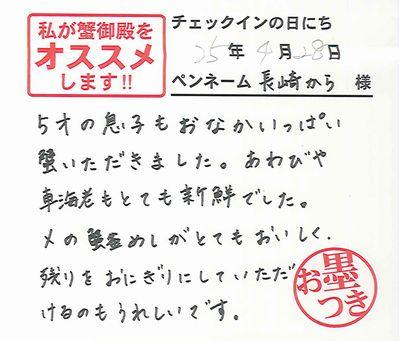 私が蟹御殿を
オススメ
します!!
チェックインの日にち
25年4月28日
ペンネーム 長崎から 様
5才の息子もおなかいっぱい
蟹いただきました。あわびや
車海老もとても新鮮でした。
〆の蟹釜めしがとてもおいしく、
残りをおにぎりにしていただ
けるのもうれしいです。
お墨つき